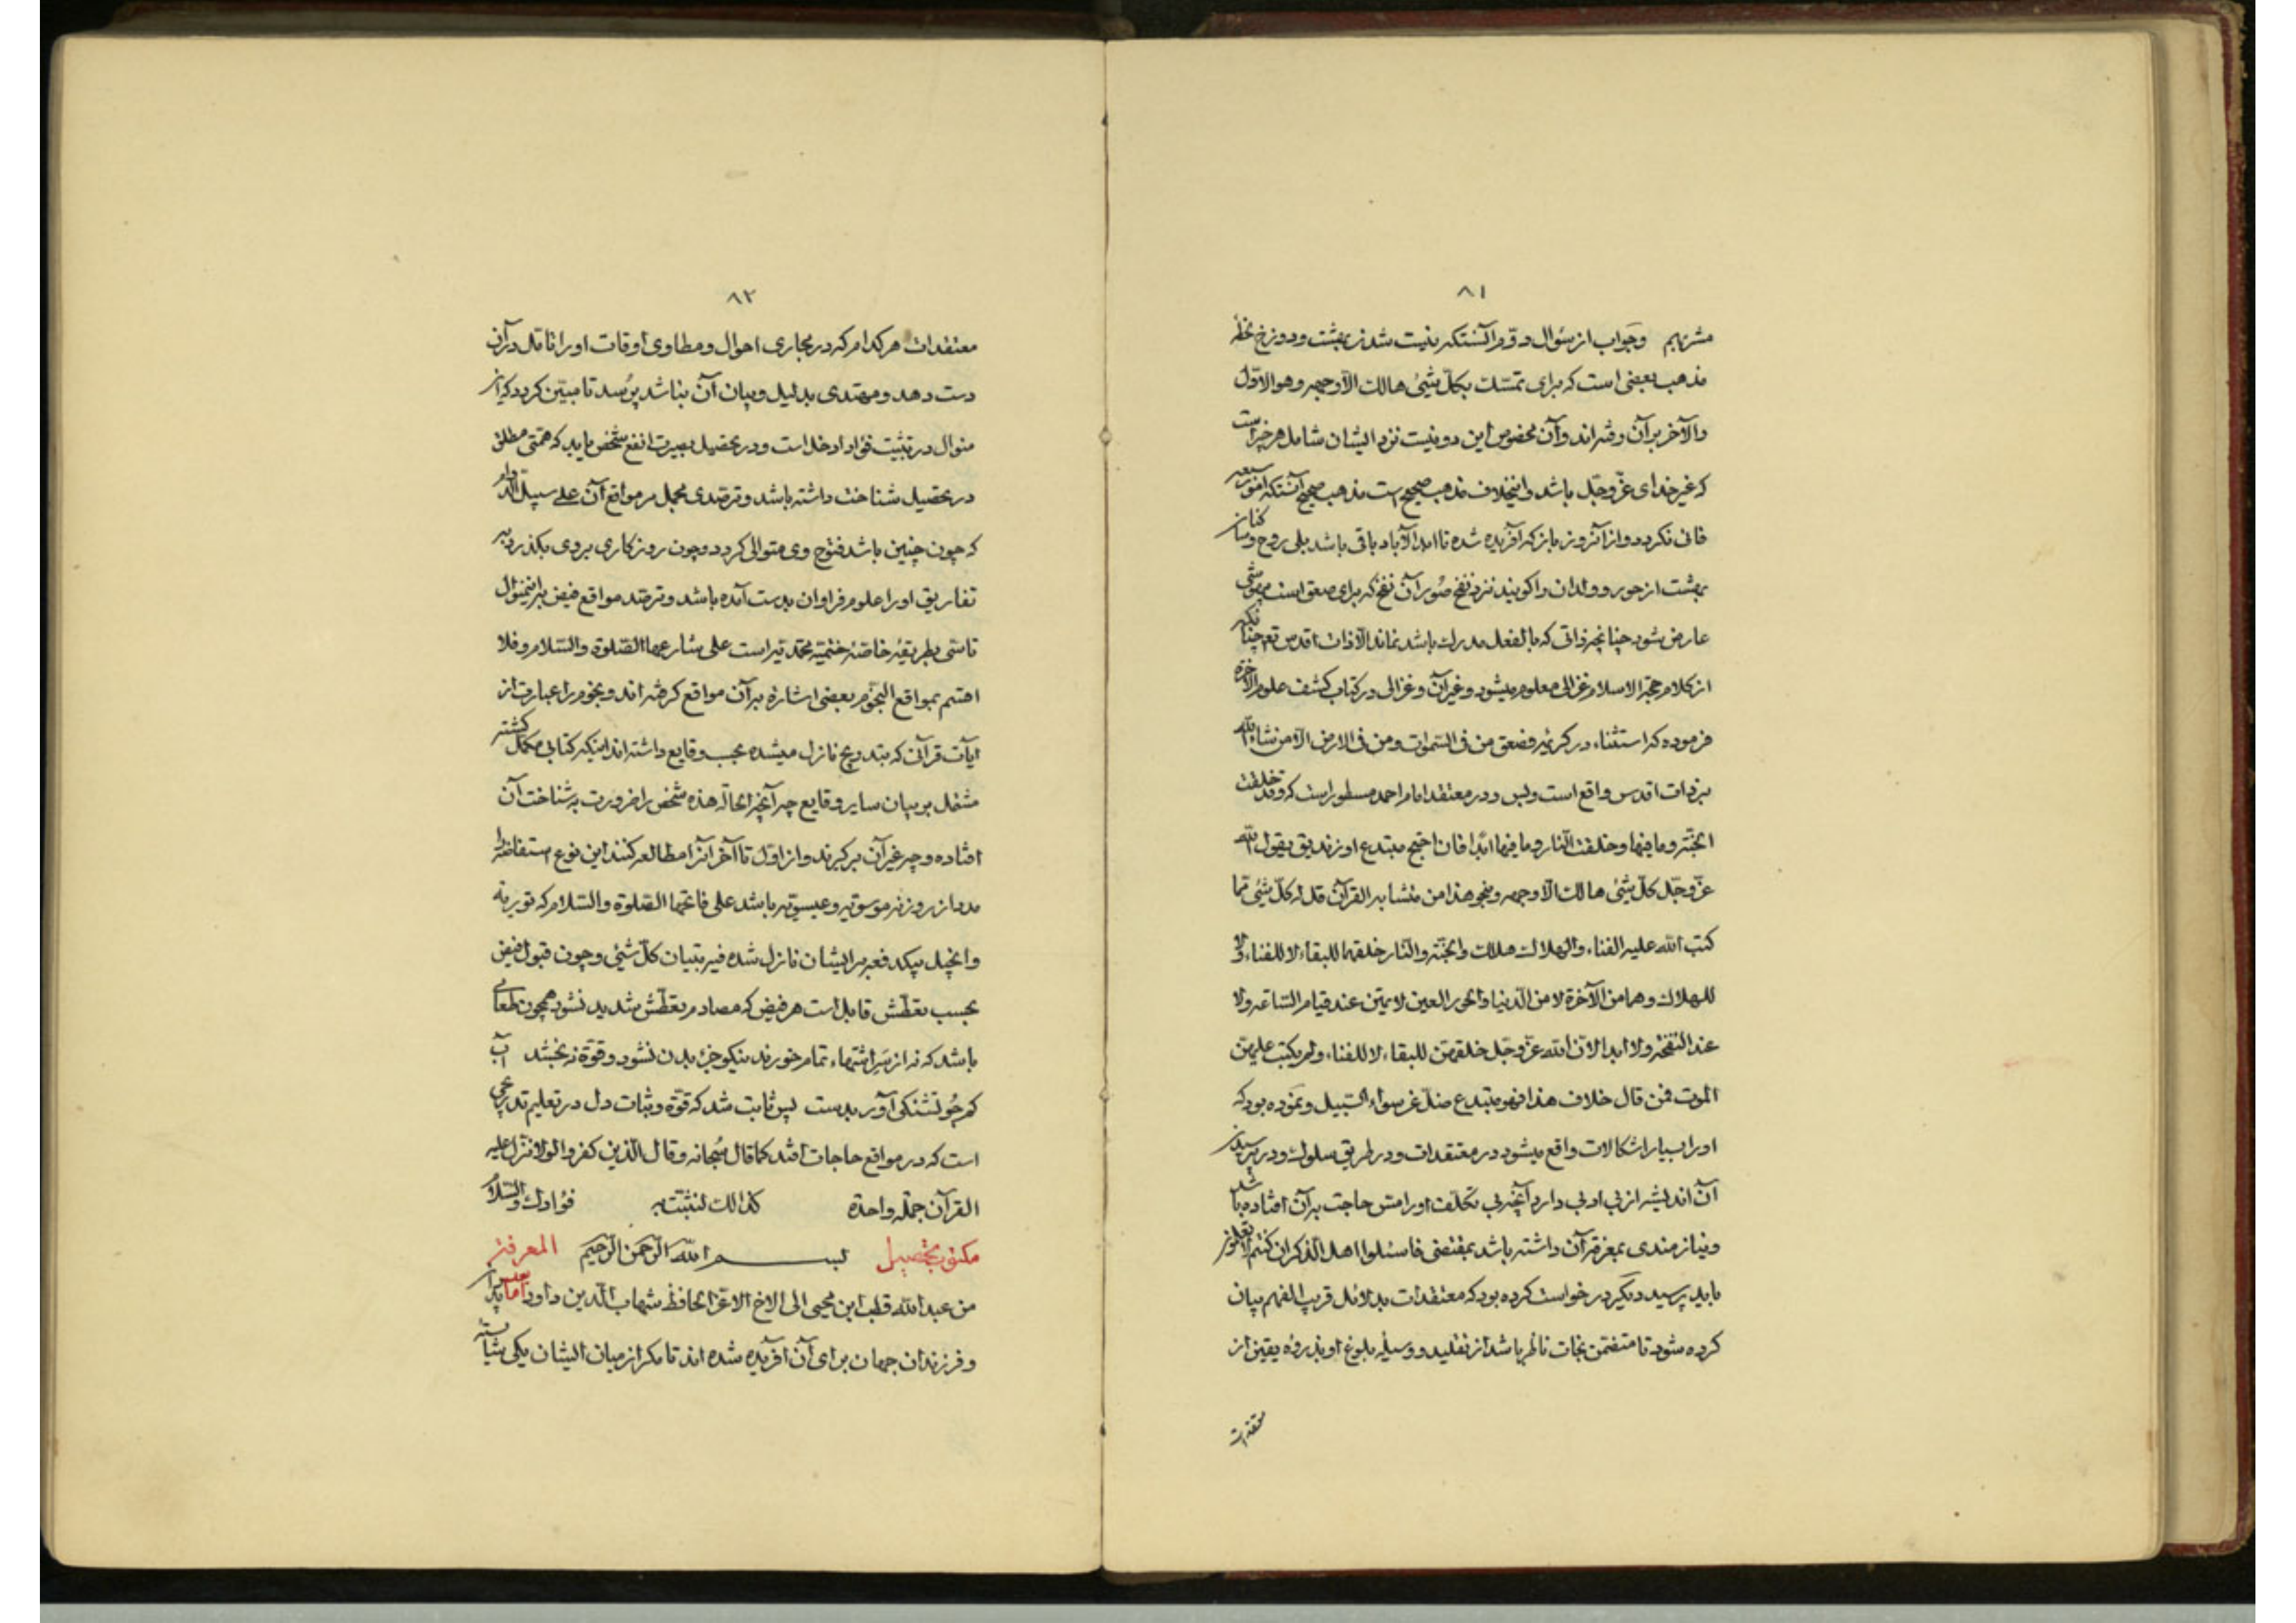 ٨١
مشربهم وجواب از سؤال دوّم آنستکه نیست شدن بهشت ودوزخ
مذهب بعضی است که برای تمسّک بکلّ شیئ هالک الّا وجهه وهو الاوّل
والآخر برآن رفته اند وآن مخصوص این دو نیست نزد ایشان شامل هر چیز است
که غیر خدای عزّ وجلّ باشد واینخلاف مذهب صحیح است مذهب صحیح آنستکه امور
فانی نکردد واز آنروز بازکه آفریده شده تا ابد الآباد باقی باشد بلی روح
بهشت از حور وولدان را کویند نزد نفخ صُور آن نفخ که برای صعق است بیهوشی
عارض شود چنانچه ذاتی که بالفعل مدرک باشد نماند الّا ذات اقدس تع چنانکه
از کلام حجّة الاسلام غزالی معلوم میشود وغیر آن وغزالی در کتاب کشف علوم الآخرة
فرموده که استثناء در کریمه فصعق من فی السّموات ومن فی الارض الّا من شاء الله
بر ذات اقدس واقع است وبس ودر معتقد امام احمد مسطور است که وقد خلقت
الجنّة وما فیها وخلقت النّار وما فیها ابدًا فان احتج مبتدع او زندیق بقول الله
عزّ وجلّ کلّ شیئ هالک الّا وجهه وبنحو هذا من متشابه القرآن قل له کلّ شیئ ممّا
کتب الله علیه الفناء والهلاک هلاک والجنّة والنّار خلقهما للبقاء لا للفناء ولا
للهلاک وهما من الآخرة لا من الدّنیا والحور العین لا یمتن عند قیام السّاعه ولا
عند النّفخة ولا ابدا لانّ الله عزّ وجلّ خلقهنّ للبقاء لا للفناء ولم یکتب علیهنّ
الموت فمن قال خلاف هذا فهو مبتدع ضلّ عن سواء السّبیل ونموده بود که
اورا بسیار اشکالات واقع میشود در معتقدات ودر طریق سلوک ودر پرسیدن
آن اندیشه از بی ادبی دارد آنچه بی تکلّف اورا مسّ حاجت برآن افتاده باشد
ونیازمندی بمعرفة آن داشته باشد بمقتضی فاسئلوا اهل الذّکر ان کنتم لا تعلمون
باید پرسید دیکر درخواست کرده بود که معتقدات بدلائل قریب الفهم بیان
کرده شود تا متضمّن نجات ناظر باشد از تقلید ووسیله بلوغ او بذروه یقین از
معتقدات
٨٢
معتقدات هر کدام که در مجاری احوال ومطاوی اوقات اورا تأمّل در آن
دست دهد ومهتدی بدلیل وبیان آن نباشد پرسد تا مبیّن کردد که این
منوال در تثبیت فؤاد ادخل است ودر تحصیل بصیرت انفع شخص باید که همّتی مطلق
در تحصیل شناخت داشته باشد وترصّدی مجمل مر مواقع آن علی سبیل الدّوام
که چون چنین باشد فتوح وی متوالی کردد وچون روزکاری بروی بکذرد به
تفاریق اورا علوم فراوان بدست آمده باشد وترصّد مواقع فیض براینمنوال
تأسّی بطریقه خاصّه ختمیّه محمّدیّه است علی شارعها الصّلوة والسّلام وفلا
اقسم بمواقع النّجوم بعضی اشاره برآن مواقع کرفته اند ونجوم را عبارت از
آیات قرآنی که بتدریج نازل میشده بحسب وقایع داشته اند اینکه کتابی مکمل کشته
مشتمل بر بیان سایر وقایع چه آنچه الحاله هذه شخص را ضرورت بشناخت آن
افتاده وچه غیر آن برکیرند واز اوّل تا آخر آنرا مطالعه کنند این نوع استفاضه
مدد از روزنه موسویّه وعیسویّه باشد علی فاتحها الصّلوة والسّلام که توریة
وانجیل بیکدفعه بر ایشان نازل شده فیه تبیان کلّ شیئ وچون قبول فیض
بحسب تعطّش قابل است هر فیض که مصادم تعطّش شدید نشود همچون طعامی
باشد که نه از سر اشتهاء تمام خورند نیکو جزء بدن نشود وقوّة نبخشد آب
کم جو تشنکی آور بدست پس ثابت شد که قوّة وثبات دل در تعلیم تدریجی
است که در مواقع حاجات افتد کما قال سُبحانه وقال الّذین کفروا لولا نزّل علیه
القرآن جملة واحدة کذالک لنثبّت به فؤادک والسّلام
مکتوب بتحصیل بسم الله الرّحمن الرّحیم المعرفة
من عبدالله قطب ابن محیی الی الاخ الاعزّ الحافظ شهاب الدّین داود امّا بعد
وفرزندان جهان برای آن آفریده شده اند تا مکر از میان ایشان یکی